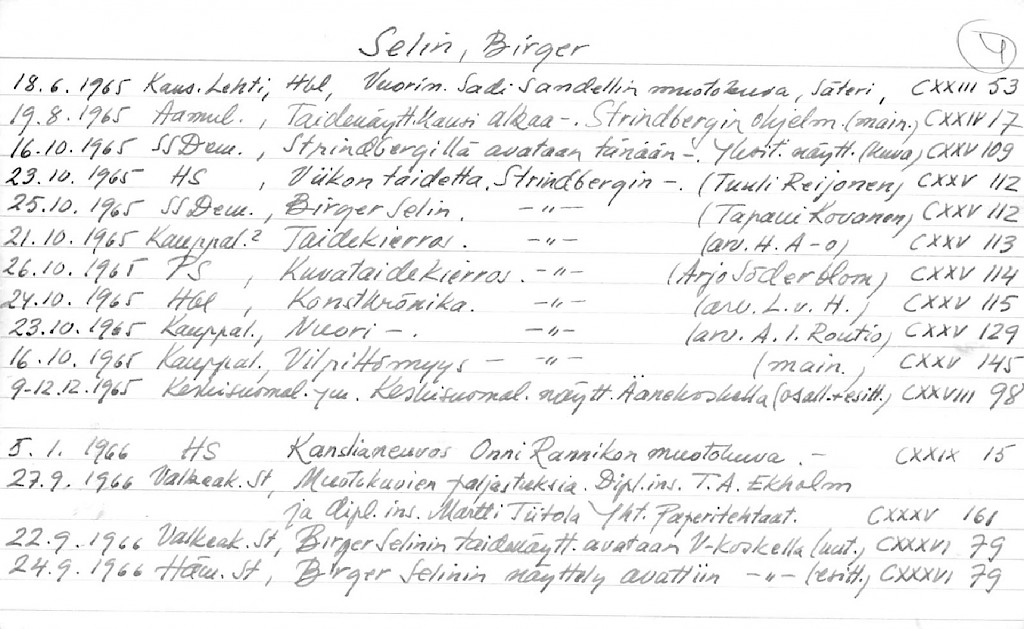 Selin, Birger
4
18.6.1965 Kans. Lehti, Hbl, Vuorin. Sadi Sandellin muotokuva, Säteri, CXXIII 53
19.8.1965 Aamul., Taidenäytt.kausi alkaa -. Strindbergin ohjelm. (main.) CXXIV 17
16.10.1965 SSDem., Strindbergillä avataan tänään -. Yksit. näytt. (kuva) CXXV 109
23.10.1965 HS, Viikon taidetta, Strindbergin -. (Tuuli Reijonen) CXXV 112
25.10.1965 SSDem., Birger Selin. -"- (Tapani Kovanen) CXXV 112
21.10.1965 Kauppal.² Taidekierros. -"- (arv. H. A-o) CXXV 113
26.10.1965 PS, Kuvataidekierros. -"- (Arjo Söderblom) CXXV 114
24.10.1965 Hbl, Konstkrönika. -"- (arv. L.v.H.) CXXV 115
23.10.1965 Kauppal., Nuori -. -"- (arv. A.I. Routio) CXXV 129
16.10.1965 Kauppal., Vilpittömyys - -"- (main.) CXXV 145
9-12.12.1965 Keskisuomal. ym. Keskisuomal. näytt. Äänekoskella (osall.+esitt.) CXXVIII 98
5.1.1966 HS Kanslianeuvos Onni Rannikon muotokuva. - CXXIX 15
27.9.1966 Valkeak. St, Muotokuvien paljastuksia. Dipl.ins. T.A. Ekholm
ja dipl. ins. Martti Tiitola Yht. Paperitehtaat. CXXXV 161
22.9.1966 Valkeak. St, Birger Selinin taidenäytt. avataan V-koskella (uut.) CXXXVI 79
24.9.1966 Häm. St, Birger Selinin näyttely avattiin -"- (esitt.) CXXXVI 79